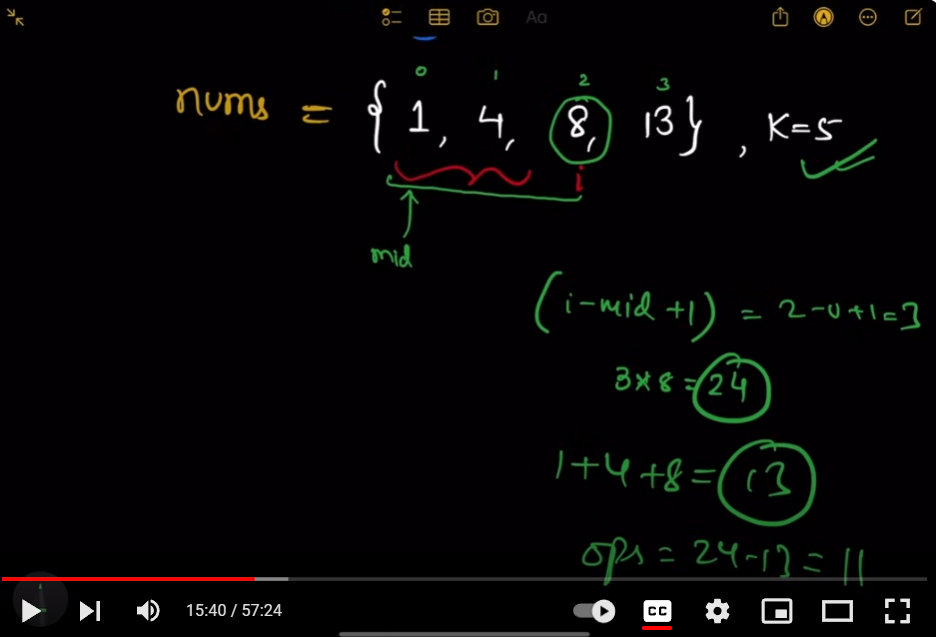 Aa
0 1 2 3
nums = {1, 4, 8, 13}, K=5
i
mid
(i-mid+1) = 2-0+1=3
3*8=24
1+4+8=13
ops = 24-13=11
15:40 / 57:24
CC